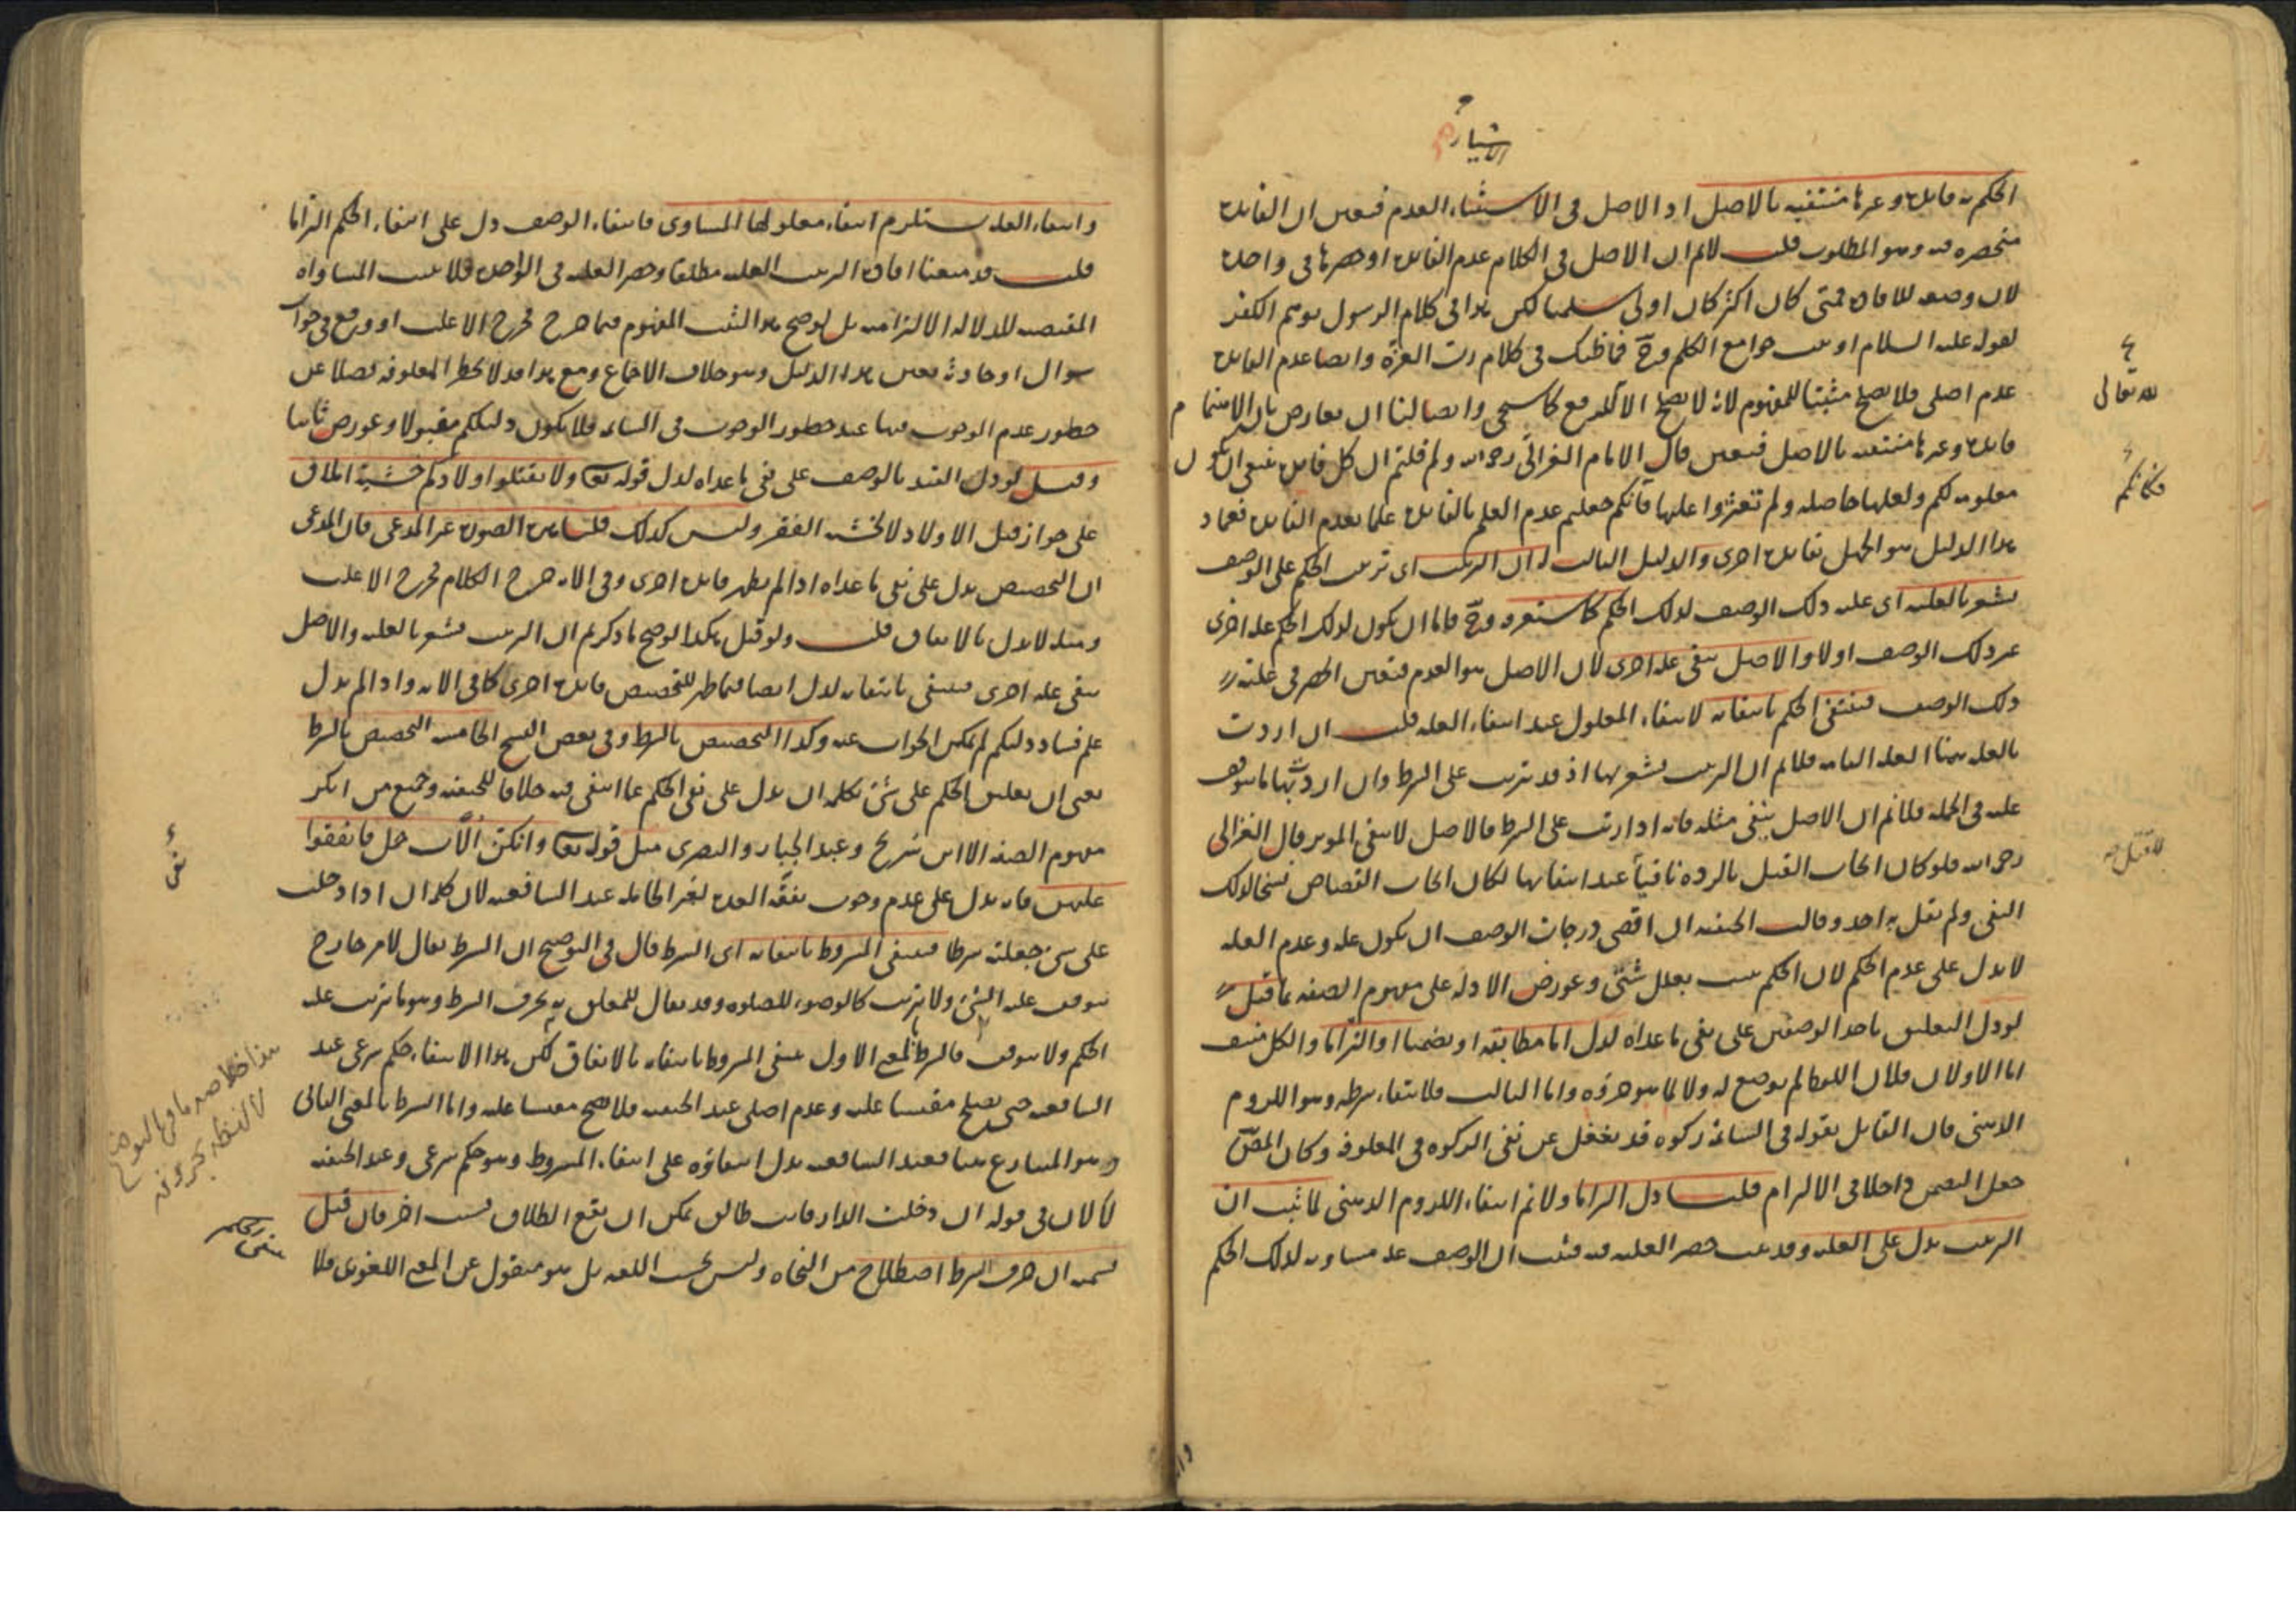 الاشياء
الحكم به فايدة وغيرها منتفية بالاصل اذ الاصل في الاشياء العدم فتعين ان الفايدة
منحصرة فيه وهو المطلوب قلت لانم ان الاصل في الكلام عدم الفايدة او حصرها في واحدة
لان وضعه للافادة فمتى كان اكثر كان اولى سلمنا لكن هذا في كلام الرسول يوهم الكفر
لقوله عليه السلام اوتيت جوامع الكلم وح فما ظنك في كلام رب العزة وايضا عدم الفايدة
عدم اصلي فلا يصلح مثبتا للمفهوم لانه لا يصلح الا للدفع كما سيجي وايضا لنا ان نعارض بان
فايدة وغيرها منتفية بالاصل فتعين قال الامام الغزالي رحمه الله ولم قلتم ان كل فايدة ينبغي ان يكون
معلومة لكم ولعلها حاصلة ولم تعثروا عليها فانكم جعلتم عدم العلم بالفايدة علما بعدم الفايدة فعماد
هذا الدليل هو الجهل بفايدة اخرى والدليل الثالث ان الترتيب اى ترتيب الحكم على الوصف
يشعر بالعلية اى علية ذلك الوصف لذلك الحكم كما ستعرفه وح فاما ان يكون لذلك الحكم علة اخرى
غير ذلك الوصف اولا والاصل ينفي علة اخرى لان الاصل هو العدم فتعين الحصر في علية
ذلك الوصف فينتفي الحكم بانتفائه لانتفاء المعلول عند انتفاء العلة قلت ان اردت
بالعلة هنا العلة التامة فلانم ان الترتيب يشعر بها اذ قد يترتب على الشرط وان اردت بها ما يتوقف
عليه في الجملة فلانم ان الاصل ينفي مثله فانه اذا رتب على الشرط فالاصل لا ينفي المؤثر قال الغزالي
رحمه الله فلو كان ايجاب القتل بالردة نافيا عند انتفائها لكان ايجاب القصاص نسخا لذلك
النفي ولم يقل به احد وقالت الحنفية ان اقصى درجات الوصف ان يكون علة وعدم العلة
لا يدل على عدم الحكم لان الحكم يثبت بعلل شتى وعورض الادلة على مفهوم الصفة بما قيل
لو دل التعليق باحد الوصفين على نفي ما عداه لدل اما مطابقة او تضمنا او التزاما والكل منتف
اما الاولان فلان اللفظ لم يوضع له ولا لما هو جزؤه واما الثالث فلانتفاء شرطه وهو اللزوم
الذهني فان القايل بقوله في السائمة زكوة قد يغفل عن نفي الزكوة في المعلوفة وكان المص
جعل التضمن داخلا في الالتزام قلنا دل التزاما ولانم انتفاء اللزوم الذهني لما ثبت ان
الترتيب يدل على العلية وقد ثبت حصر العلية فيه فثبت ان الوصف علة مساوية لذلك الحكم
لله تعالى
فكانكم
القتل
وانتفاء العلة يستلزم انتفاء معلولها المساوى فانتفاء الوصف دل على انتفاء الحكم التزاما
قلت قد منعنا افادة الترتيب العلية مطلقا وحصر العلية في الواحدة فلا يثبت المساواة
المقتضية للدلالة الالتزامية بل لو صح هذا لثبت المفهوم فيما خرج مخرج الاغلب او وقع في جواب
سوال او حادثة بعين هذا الدليل وهو خلاف الاجماع ومع هذا قد لا يخطر المعلوفة فضلا عن
خطور عدم الوجوب فيها عند خطور الوجوب في السائمة فلا يكون دليلكم مقبولا وعورض ثانيا
وقيل لو دل التقييد بالوصف على نفي ما عداه لدل قوله تع ولا تقتلوا اولادكم خشية املاق
على جواز قتل الاولاد لا لخشية الفقر وليس كذلك قلنا هذه الصورة غير المدعى فان المدعى
ان التخصيص يدل على نفي ما عداه اذا لم يظهر فايدة اخرى وفي الاية خرج الكلام مخرج الاغلب
ومثله لا يدل بالاتفاق قلت ولو قيل هكذا لو صح ما ذكرتم ان الترتيب يشعر بالعلية والاصل
ينفي علة اخرى فينتفي بانتفائه لدل ايضا فيما ظهر للتخصيص فايدة اخرى كما في الاية واذا لم يدل
علم فساد دليلكم لم يمكن الجواب عنه وكذا التخصيص بالشرط وفي بعض النسخ الخامسة التخصيص بالشرط
يعني ان تعليق الحكم على شئ بكلمة ان يدل على نفي الحكم عما انتفى فيه خلافا للحنفية وجميع من انكر
مفهوم الصفة الا ابن شريح وعبد الجبار والبصرى مثل قوله تع وان كن اولات حمل فانفقوا
عليهن فانه يدل على عدم وجوب نفقة العدة لغير الحاملة عند الشافعية لان كلمة ان اذا دخلت
على شئ جعلته شرطا فينتفي المشروط بانتفائه اى الشرط قال في التوضيح ان الشرط يقال لامر خارج
يتوقف عليه الشئ ولا يترتب كالوضوء للصلوة وقد يقال للمعلق به بحرف الشرط وهو ما يترتب عليه
الحكم ولا يتوقف فالشرط بالمعنى الاول ينفي المشروط بانتفائه بالاتفاق لكن هذا الانتفاء حكم شرعي عند
الشافعية حتى يصلح مقيسا عليه وعدم اصلي عند الحنفية فلا يصح مقيسا عليه واما الشرط بالمعنى الثاني
وهو المتنازع هنا فعند الشافعية يدل انتفاؤه على انتفاء المشروط وهو حكم شرعي وعند الحنفية
لا لان في قوله ان دخلت الدار فانت طالق يمكن ان يقع الطلاق بسبب اخر فان قيل
تسمية ان حرف الشرط اصطلاح من النحاة وليس بحسب اللغة بل هو منقول عن المعنى اللغوى فلا
نفي
هذا خلاصة ما في التوضيح
لا لفظه بحروفه